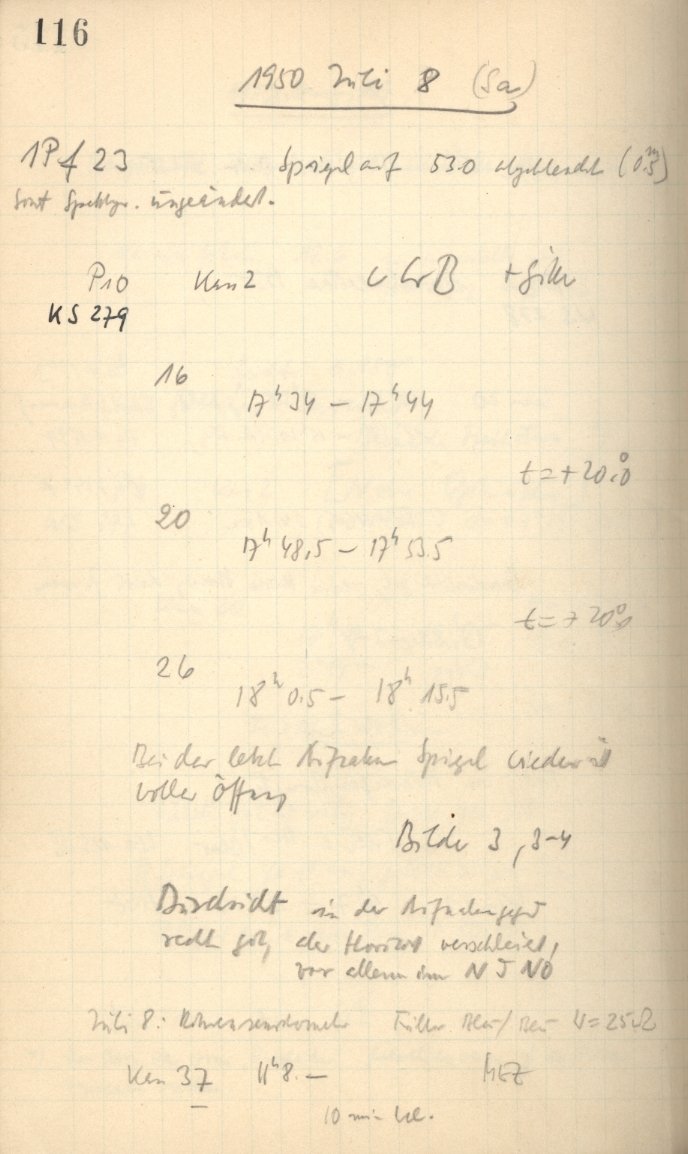 116
1950 Juli 8 (Sa)
1Pf 23 Spiegel auf 530 abgeblendet (0.5)
sonst Spektrgr. ungeändert.
P10 Kas 2 CrB + Gitter
KS 279
16
17ʰ34 – 17ʰ44
t = +20.°0
20
17ʰ48,5 – 17ʰ53.5
t = +20°
26
18ʰ0.5 – 18ʰ15.5
Bei der letzten Aufnahme Spiegel wieder
voller Öffnung
Bilder 3, 3-4
Durchsicht in der Aufnahmegegend
recht gut, der Horizont verschleiert,
vor allem im N u NO
Juli 8: Filter Blau/ W=25Ω
Kas 37 11ʰ8. – MEZ
10 min bel.